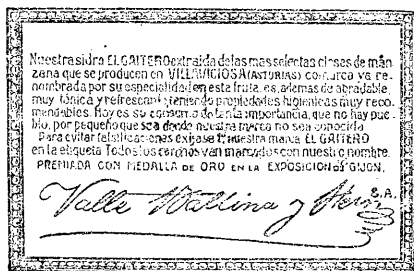 Nuestra sidra EL GAITERO extraida de las mas selectas clases de man
zana que se producen en VILLAVICIOSA (ASTURIAS) comarca ya re-
nombrada por su especialidad en esta fruta, es, ademas de agradable,
muy tónica y refrescante, teniendo propiedades higiénicas muy reco-
mendables. Hoy es su consumo de tanta importancia, que no hay pue-
blo, por pequeño que sea donde nuestra marca no sea conocida
Para evitar falsificaciones exijase nuestra marca EL GAITERO
en la etiqueta Todos los corchos van marcados con nuestro nombre.
PREMIADA CON MEDALLA DE ORO EN LA EXPOSICION DE GIJON.
Valle Ballina y Fern S.A.